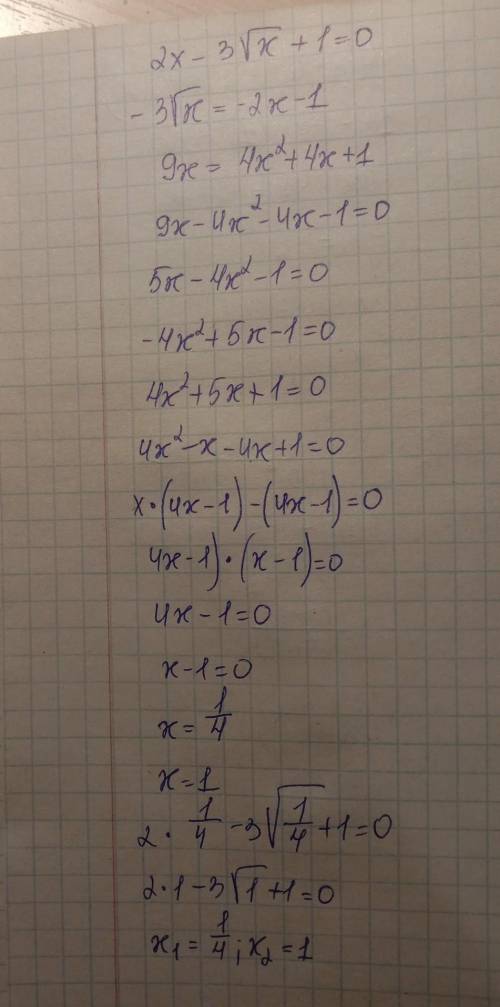 2x - 3√x + 1 = 0
- 3√x = -2x - 1
9x = 4x² + 4x + 1
9x - 4x² - 4x - 1 = 0
5x - 4x² - 1 = 0
-4x² + 5x - 1 = 0
4x² + 5x + 1 = 0
4x² - x - 4x + 1 = 0
x · (4x - 1) - (4x - 1) = 0
4x - 1) · (x - 1) = 0
4x - 1 = 0
x - 1 = 0
x = 1/4
x = 1
2 · 1/4 - 3√(1/4) + 1 = 0
2 · 1 - 3√1 + 1 = 0
x₁ = 1/4 ; x₂ = 1